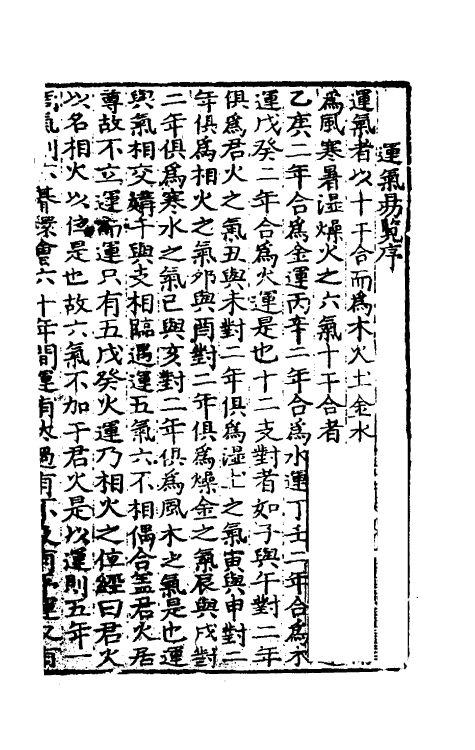 運氣易覽序
運氣者以十干合而爲木火土金水
爲風寒暑濕燥火之六氣十干合者
乙庚二年合爲金運丙辛二年合爲水運丁壬二年合爲木
運戊癸二年合爲火運是也十二支對者如子與午對二年
俱爲君火之氣丑與未對二年俱爲濕土之氣寅與申對二
年俱爲相火之氣卯與酉對二年俱爲燥金之氣辰與戌對
二年俱爲寒水之氣巳與亥對二年俱爲風木之氣是也運
與氣相交媾干與支相臨遇運五氣六不相偶合盖君火居
尊故不立運而運只有五戊癸火運乃相火之位經曰君火
以名相火以位是也故六氣不加于君火是以運則五年一
氣則六朞環會六十年間運有太過有不及有平運又有